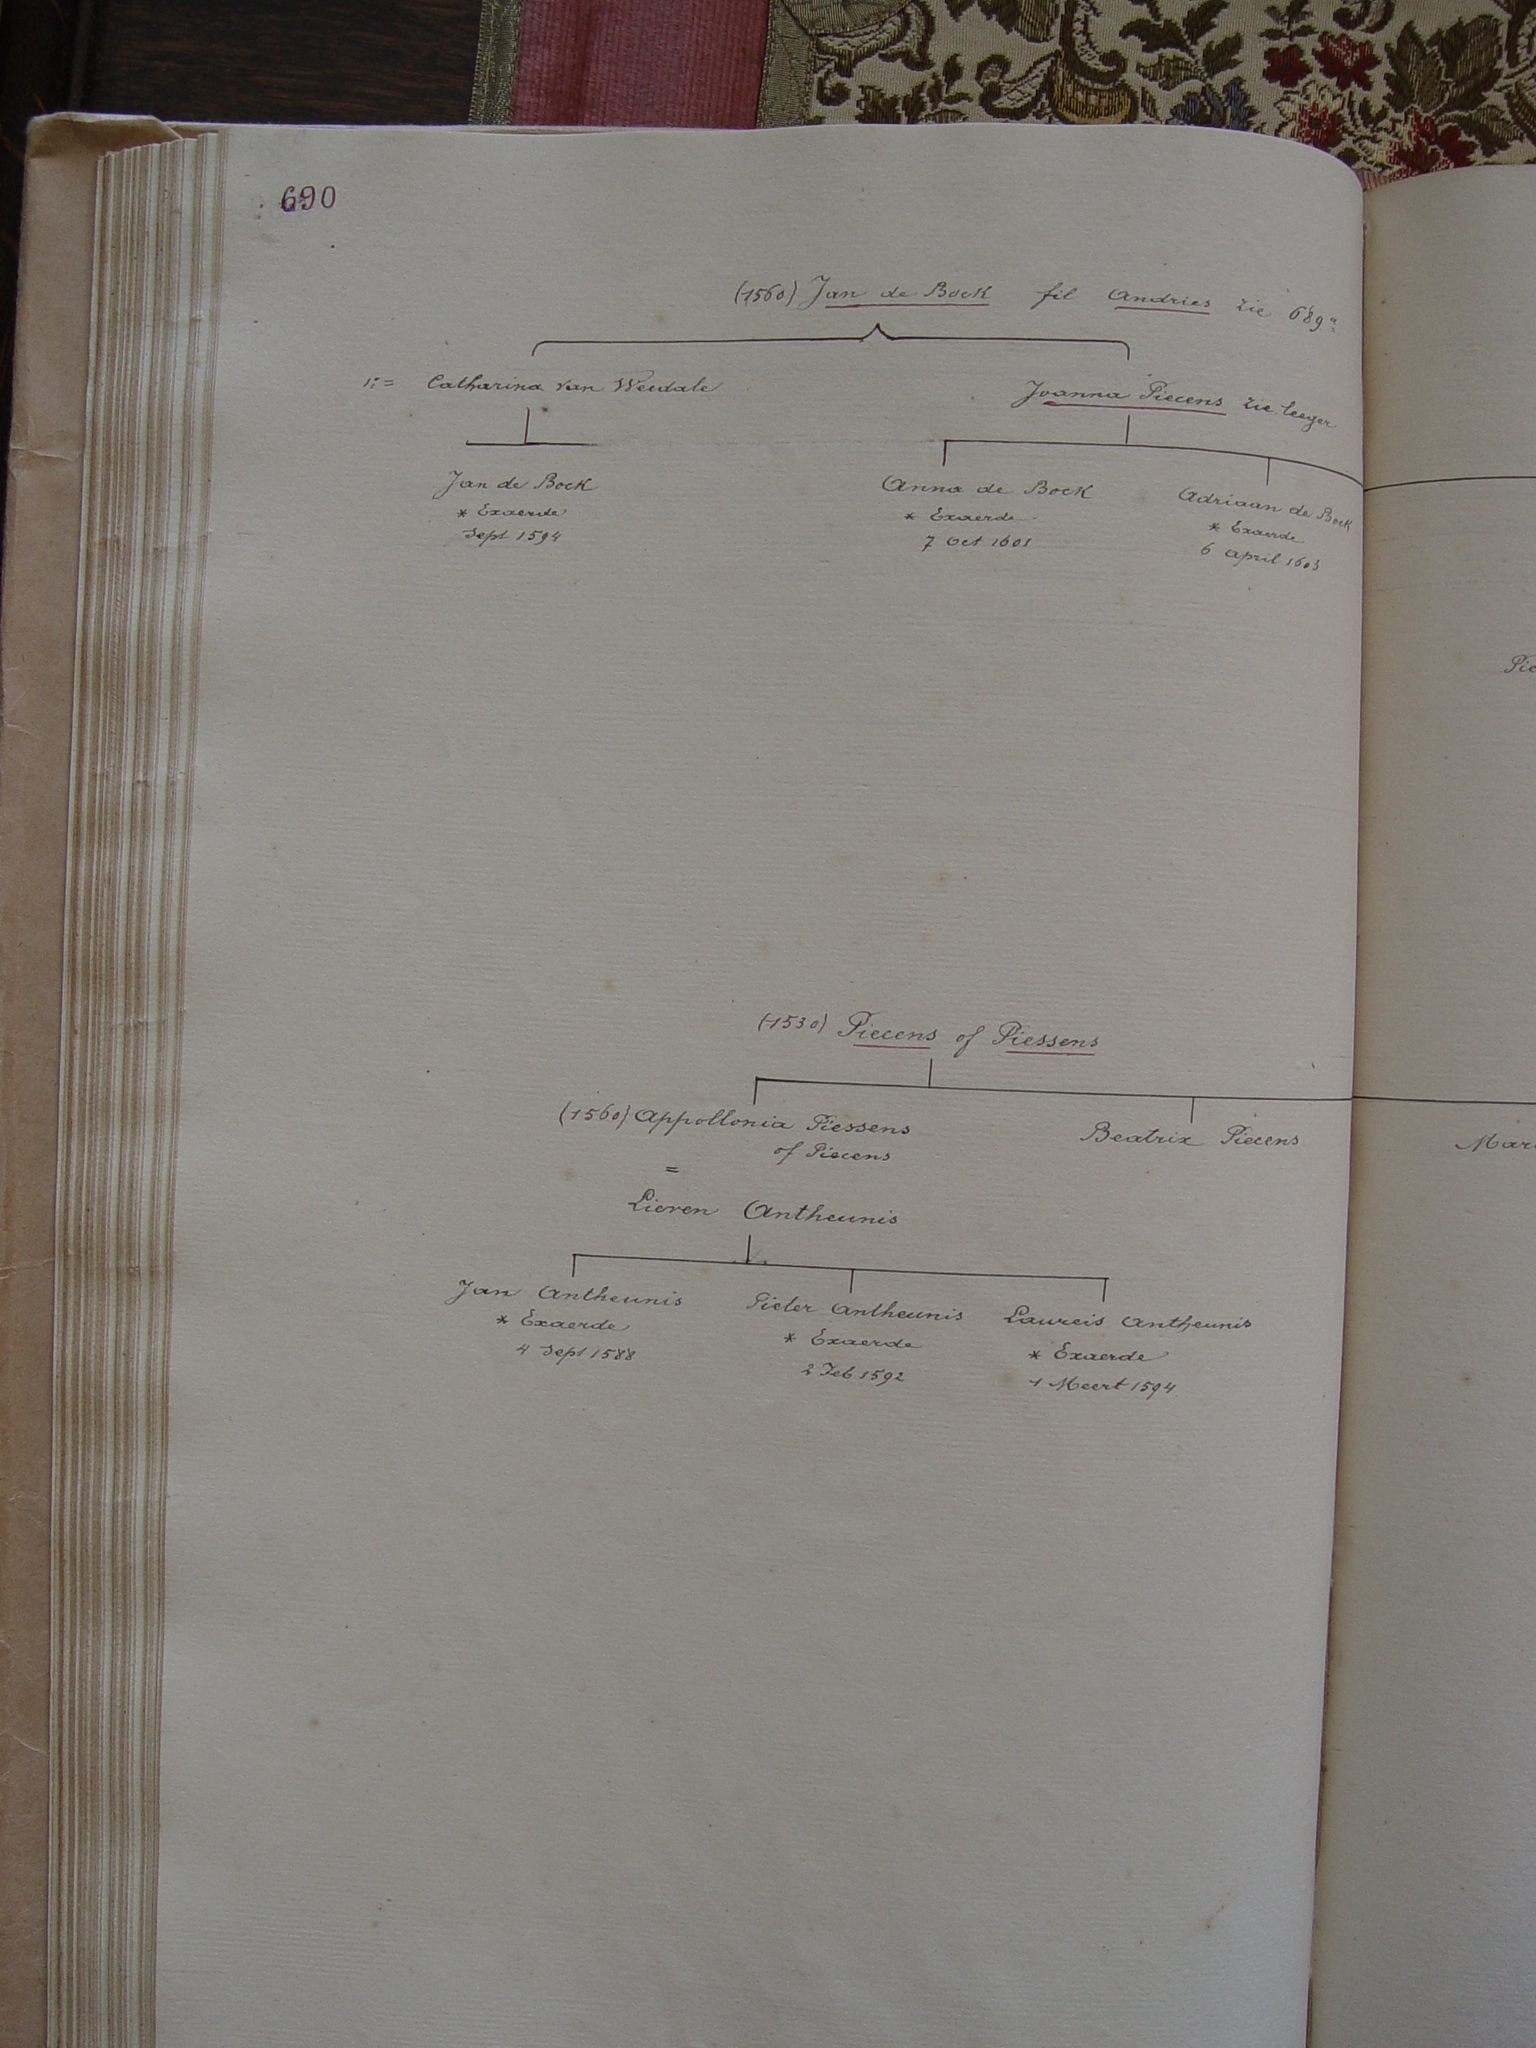 690
(1560) Jan de Bock fil Andries zie 689
1: = Catharina van Weedale
Joanna Piecens zie leeger
Jan de Bock
* Exaerde
Sept 1594
Anna de Bock
* Exaerde
7 Oct 1601
Adriaan de Bock
* Exaerde
6 April 1603
Pie
(1530) Piecens of Piessens
(1560) Appollonia Piessens
of Piecens
Beatrix Piecens
Mar
=
Lieven Antheunis
Jan Antheunis
* Exaerde
4 Sept 1588
Pieter Antheunis
* Exaerde
2 Feb 1592
Laureis Antheunis
* Exaerde
1 Meert 1594